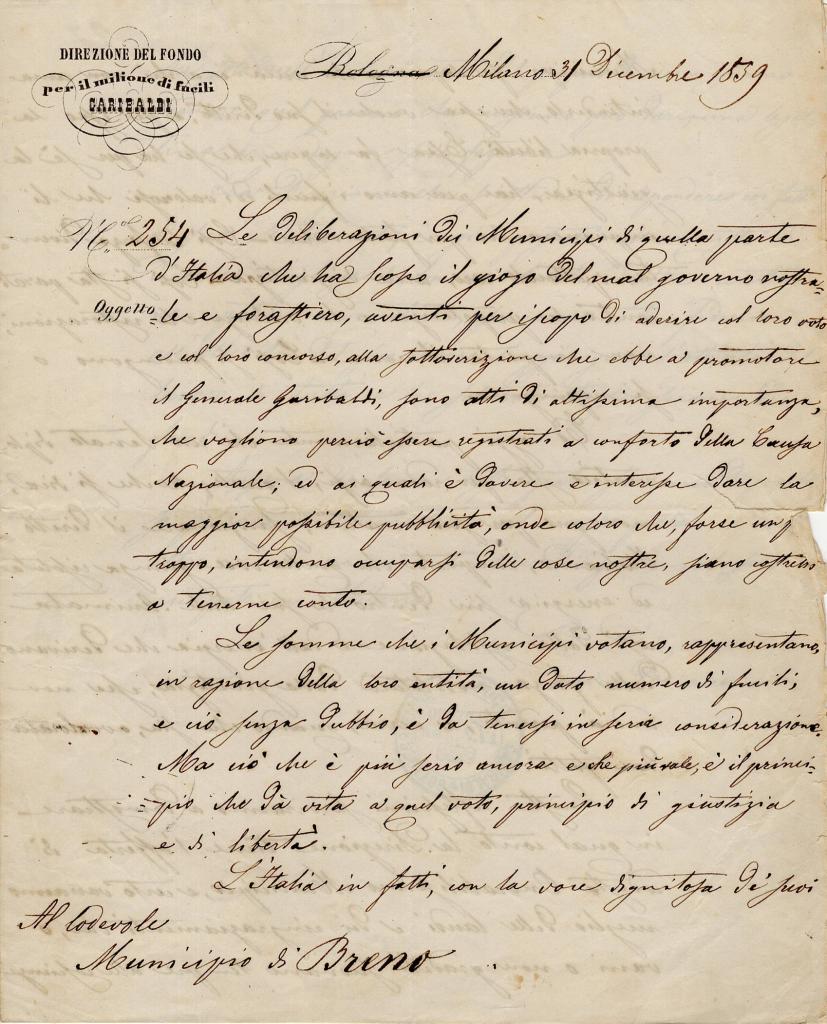 DIREZIONE DEL FONDO
per il milione di fucili
GARIBALDI
Bologna Milano 31 Dicembre 1859
N.º 254 Le deliberazioni dei Municipi di quella parte
d'Italia che ha scosso il giogo del mal governo nostra-
Oggetto le e forastiero, aventi per iscopo di aderire col loro voto
e col loro concorso, alla sottoscrizione che ebbe a promotore
il Generale Garibaldi, sono atti di altissima importanza,
che vogliono perciò essere registrati a conforto della Causa
Nazionale; ed ai quali è dovere e interesse dare la
maggior possibile pubblicità, onde coloro che, forse un
troppo, intendono occuparsi delle cose nostre, siano costretti
a tenerne conto.
Le somme che i Municipi votano, rappresentano,
in ragione della loro entità, un dato numero di fucili,
e ciò senza dubbio, è da tenersi in seria considerazione.
Ma ciò che è più serio ancora e che più vale, è il princi-
pio che dà vita a quel voto, principio di giustizia
e di libertà.
L'Italia in fatti, con la voce dignitosa de' suoi
Al lodevole
Municipio di Breno